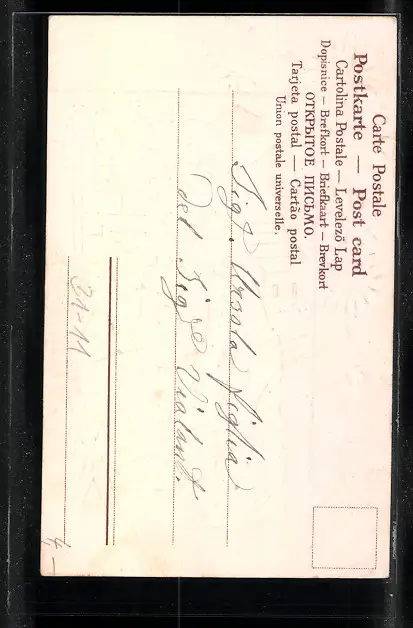 Carte Postale
Postkarte — Post card
Cartolina Postale — Levelező Lap
Dopisnice — Brefkort — Briefkaart — Brevkort
ОТКРЫТОЕ ПИСЬМО.
Tarjeta postal — Cartão postal
Union postale universelle.
Sigra Ursula figlia
del Sigre Vialant.
31-11
4,—